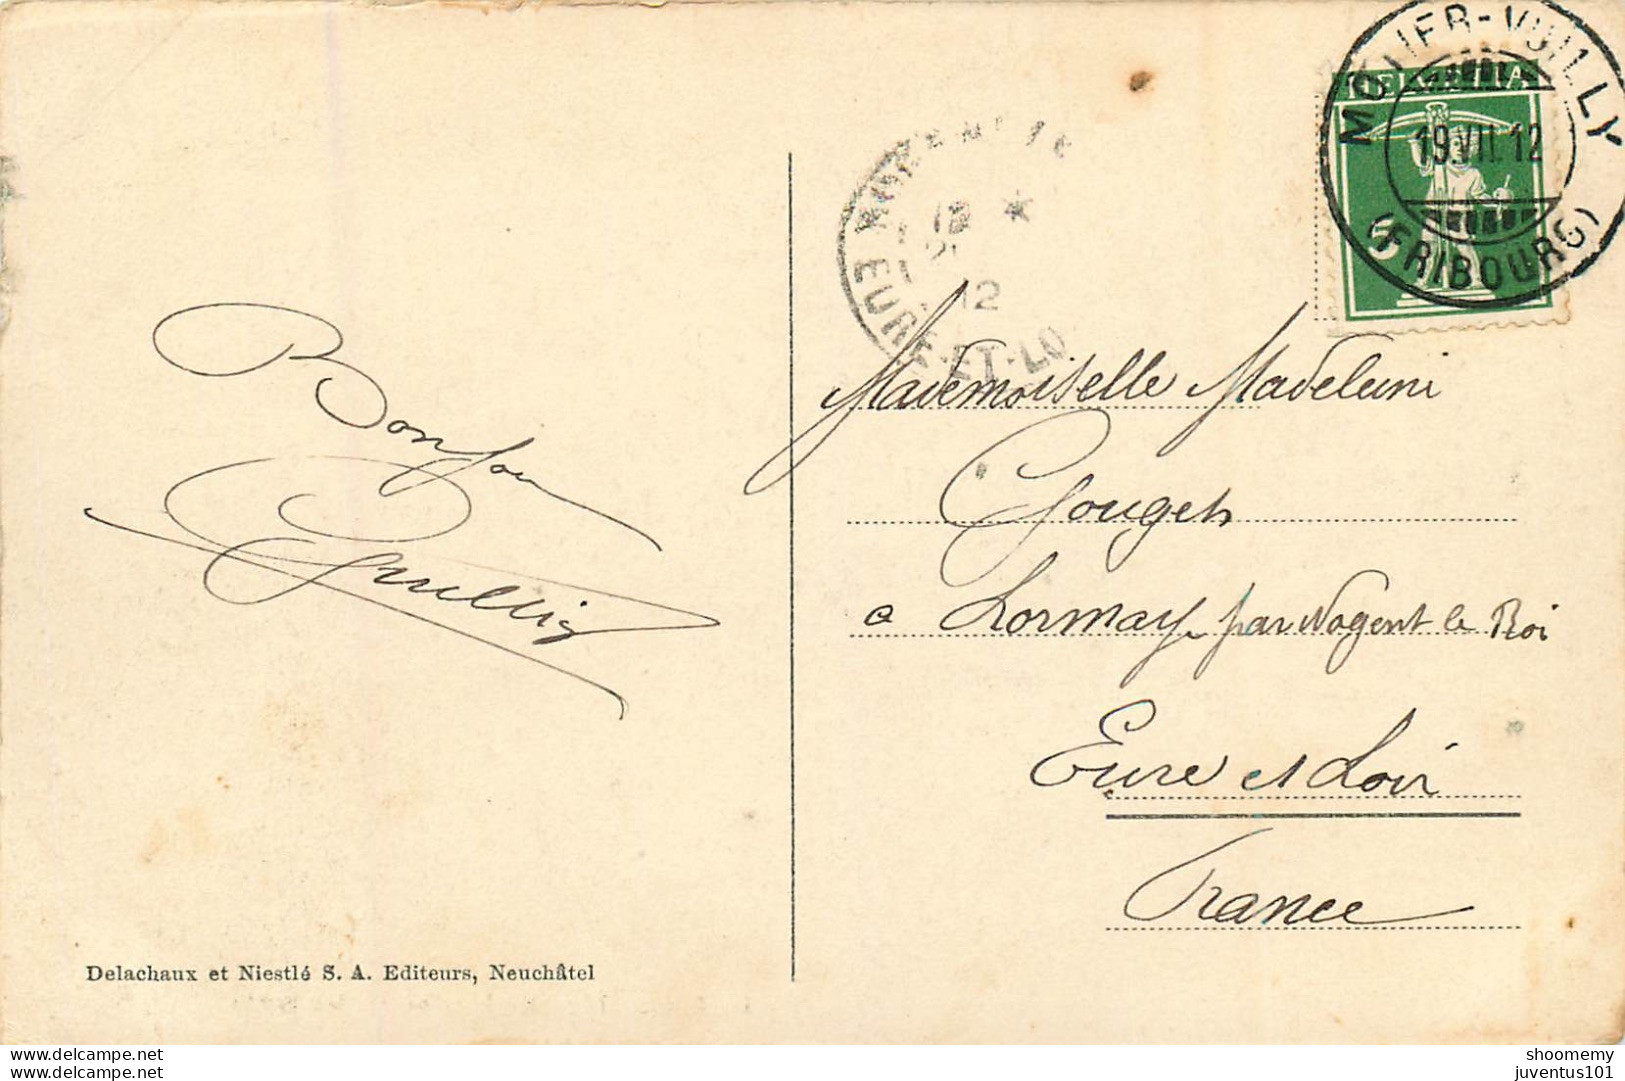 MÔTIER-VUILLY
HELVETIA
19.VII.12
5
(FRIBOURG)
12
EURE-ET-LO
Bonjou
Mademoiselle Madeleine
Gouget
a Lormaye par Nogent le Roi
Eure et Loir
France
Delachaux et Niestlé S. A. Editeurs, Neuchâtel
www.delcampe.net
www.delcampe.net
shoomemy
juventus101